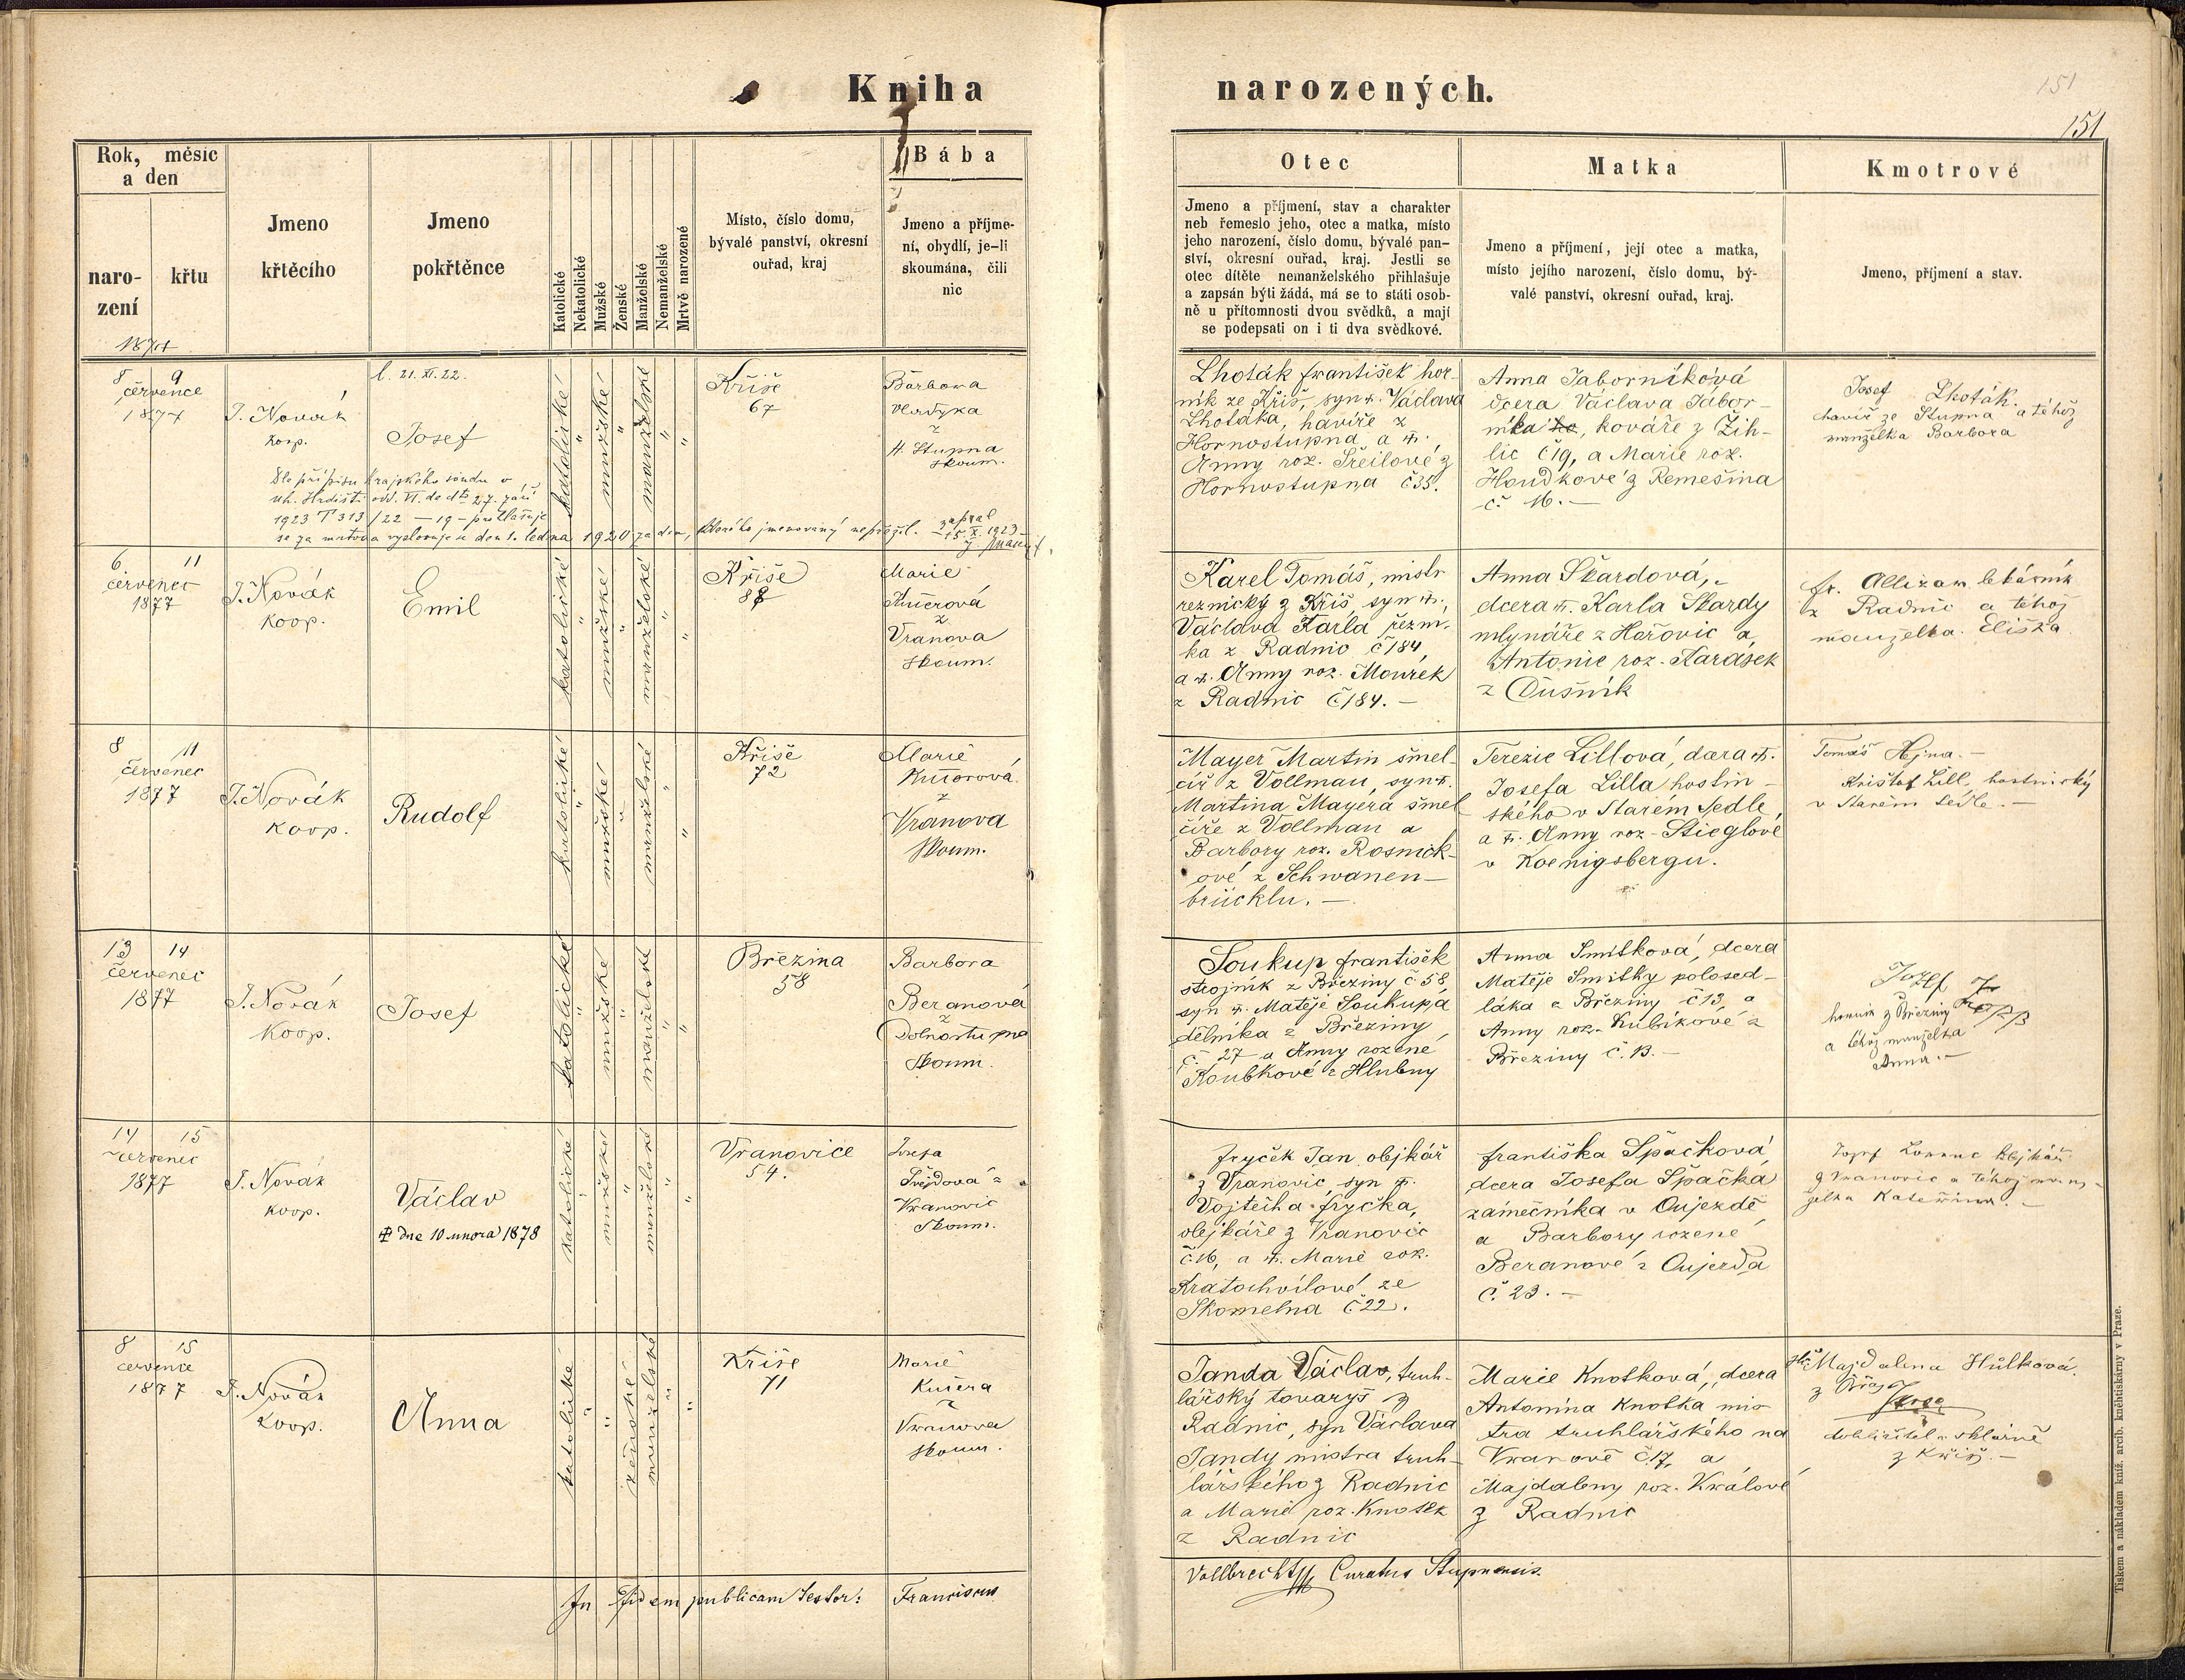 Kniha
narozených.
151
151
Rok, měsíc
a den
naro-
zení
křtu
1877
Jmeno
křtěcího
Jmeno
pokřtěnce
Katolické
Nekatolické
Mužské
Ženské
Manželské
Nemanželské
Mrtvě narozené
Místo, číslo domu,
bývalé panství, okresní
ouřad, kraj
Bába
Jmeno a příjme-
ní, obydlí, je-li
skoumána, čili
nic
Otec
Jmeno a příjmení, stav a charakter
neb řemeslo jeho, otec a matka, místo
jeho narození, číslo domu, bývalé pan-
ství, okresní ouřad, kraj. Jestli se
otec dítěte nemanželského přihlašuje
a zapsán býti žádá, má se to státi osob-
ně u přítomnosti dvou svědků, a mají
se podepsati on i ti dva svědkové.
Matka
Jmeno a příjmení, její otec a matka,
místo jejího narození, číslo domu, bý-
valé panství, okresní ouřad, kraj.
Kmotrové
Jmeno, příjmení a stav.
8 9
července
1877
J. Novák
koop.
l. 21. XI. 22.
Josef
katolické
"
mužské
"
manželské
"
"
Kříše
67
Barbora
Vladyka
z
H. Stupna
skoum.
Dle přípisu krajského soudu v
uh. Hradišti odd. VI. do dto 27. září
1923 T 313/22 – 19 – prohlašuje
se za mrtva vyslovuje se den 1. ledna 1920 za den, kterého jmenovaný nepřežil. zapsal
15. X. 1923
Lhoták František hor-
ník ze Kříš, syn †. Václava
Lhotáka, havíře z
Hornostupna a †.
Anny roz. Šeilové z
Hornostupna č 35.
Anna Táborníková
dcera Václava Tábor-
níka, kováře z Žih-
lic č 19, a Marie roz.
Houdkové z Remešína
č. 16. –
Josef Lhoták.
havíř ze Stupna a téhož
manželka Barbora
6 11
červenec
1877
J. Novák
koop.
Emil
katolické
"
mužské
"
manželské
"
"
Kříše
88
Marie
Kučerová
z
Vranova
skoum.
Karel Tomáš, mistr
řeznický z Kříš, syn †.
Václava Karla řezní-
ka z Radnic č 184,
a †. Anny roz. Mourek
z Radnic č 184. –
Anna Škardová,
dcera †. Karla Škardy
mlynáře z Hořovic a
Antonie roz. Karásek
z Dušník
fr. Allizar lékárník
z Radnic a téhož
manželka Eliška
8 11
červenec
1877
J. Novák
koop.
Rudolf
katolické
"
mužské
"
manželské
"
"
Kříše
72
Marie
Kučerová
z
Vranova
skoum.
Mayer Martin šmel-
cíř z Vollmau, syn †.
Martina Mayera šmel-
cíře z Vollmau a
Barbory roz. Rosnick-
ové z Schwanen-
brücklu. –
Terezie Lillová, dcera †.
Josefa Lilla hostin-
ského v Starém Sedle
a †. Anny roz. Stieglové
v Koenigsbergu.
Tomáš Hejna. –
Krištof Lill, hostinský
v Starém Sedle. –
13 14
červenec
1877
J. Novák
koop.
Josef
katolické
"
mužské
"
manželské
"
"
Březina
58
Barbora
Beranová
z
Dolnostupna
skoum.
Soukup František
strojník z Březiny č 58,
syn †. Matěje Soukupa
dělníka z Březiny
č. 27 a Anny rozené
Koubkové z Hlubny
Anna Smitková, dcera
Matěje Smitky polosed-
láka z Březiny č 13, a
Anny roz. Kubíkové z
Březiny č. 13. –
Jozef
horník z Březiny
a téhož manželka
Anna. –
14 15
červenec
1877
J. Novák
koop.
Václav
† dne 10 února 1878
katolické
"
mužské
"
manželské
"
"
Vranovice
54.
Josefa
Švejdova z
Vranovic
skoum.
Fryček Jan olejkář
z Vranovic, syn †.
Vojtěcha Fryčka,
olejkáře z Vranovic
č. 16, a †. Marie roz.
Kratochvílové ze
Skomelna č 22.
Františka Špačková,
dcera Josefa Špačka
zámečníka v Oujezdě
a Barbory rozené
Beranové z Oujezda
č. 23. –
Jozef Lorenc olejkář
z Vranovic a téhož man-
želka Kateřina. –
8 15
července
1877
J. Novák
koop.
Anna
katolické
"
"
ženské
manželské
"
"
Kříše
71
Marie
Kučera
z
Vranova
skoum.
Janda Václav, truh-
lářský tovaryš z
Radnic, syn Václava
Jandy mistra truh-
lářského z Radnic
a Marie roz. Knotek
z Radnic
Marie Knotková, dcera
Antonína Knotka mis-
tra truhlářského na
Vranově č. 17, a
Majdaleny roz. Králové
z Radnic
Majdalena Hůlková
z Kříše
dohližitel v sklárně
z Kříš. –
In fidem publicam testor: Franciscus
Vollbrecht Curatus Stupnensis.
Tiskem a nákladem kníž. arcib. knihtiskárny v Praze.